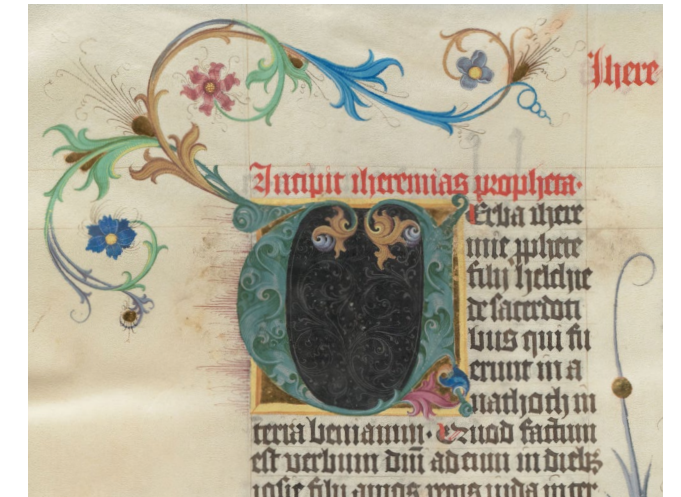 Jhere
Incipit iheremias propheta.
Uerba ihere
mie pphete
filij helchie
de sacerdoti
bus qui fu
erunt in a
nathoth in
terra beniamin. Quod factum
est verbum dni ad eum in dieb3
iosie filij amos regis iuda in ter